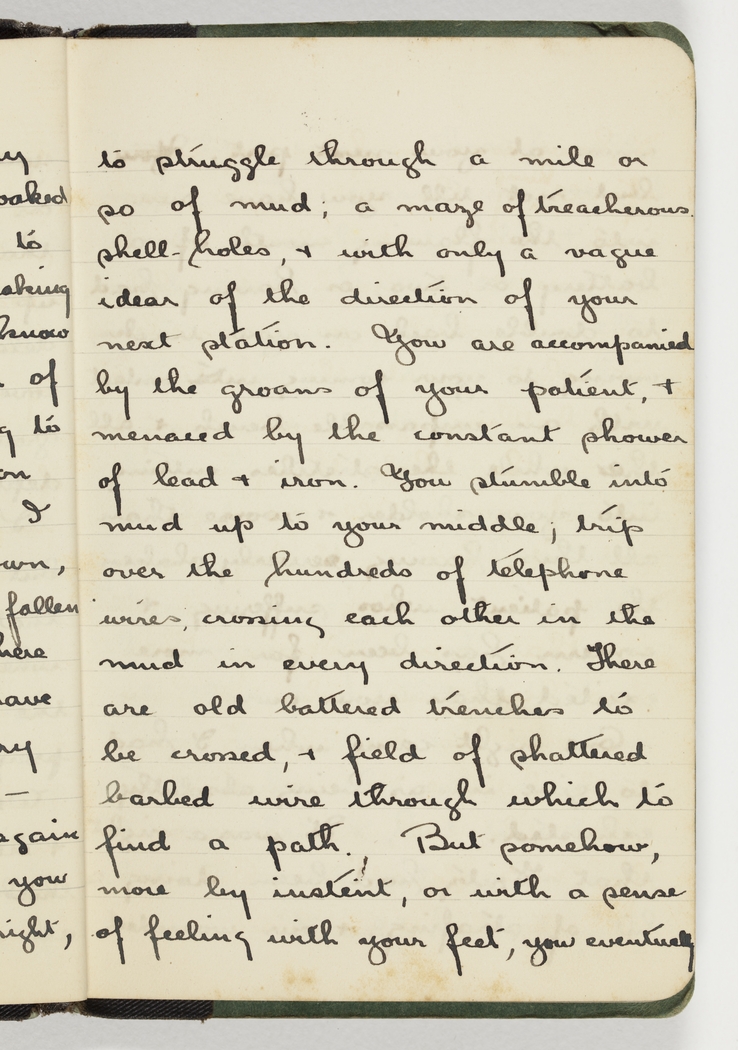 oaked
to
aking
know
of
g to
on
I
own,
fallen
here
ave
ry
—
again
you
ight,
to struggle through a mile or
so of mud; a maze of treacherous
shell-holes, + with only a vague
idear of the direction of your
next station. You are accompanied
by the groans of your patient, +
menaced by the constant shower
of lead + iron. You stumble into
mud up to your middle; trip
over the hundreds of telephone
wires, crossing each other in the
mud in every direction. There
are old battered trenches to
be crossed, + field of shattered
barbed wire through which to
find a path. But somehow,
more by instent, or with a sense
of feeling with your feet, you eventually